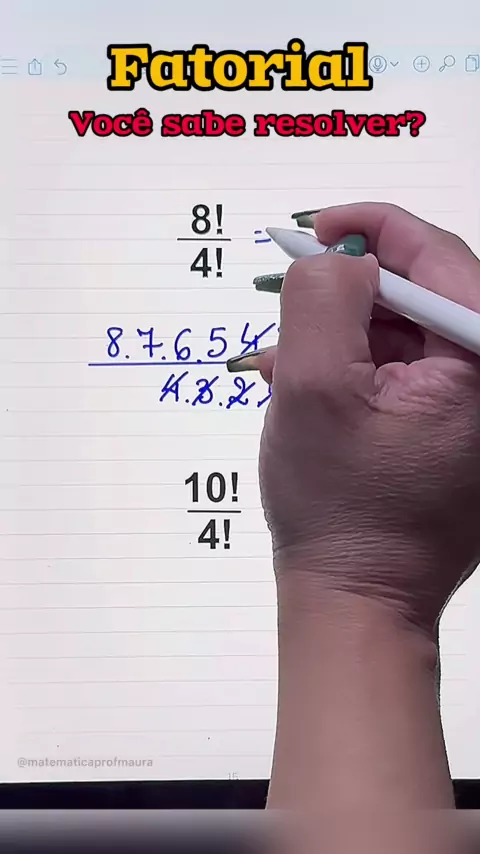 Fatorial
Você sabe resolver?
8!
4!
=
8.7.6.5 4
4.3.2.
10!
4!
@matematicaprofmaura
15